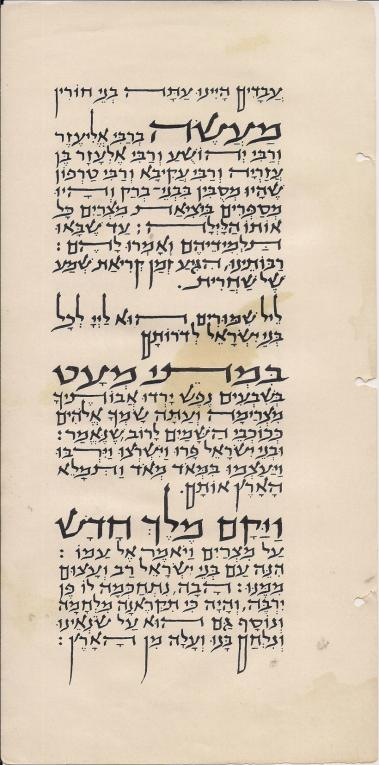 עֲבָדִים הָיִינוּ עַתָּה בְּנֵי חוֹרִין
מַעֲשֶׂה בְּרַבִּי אֱלִיעֶזֶר
וְרַבִּי יְהוֹשֻׁעַ וְרַבִּי אֶלְעָזָר בֶּן
עֲזַרְיָה וְרַבִּי עֲקִיבָא וְרַבִּי טַרְפוֹן
שֶׁהָיוּ מְסֻבִּין בִּבְנֵי־בְרַק וְהָיוּ
מְסַפְּרִים בִּיצִיאַת מִצְרַיִם כָּל
אוֹתוֹ הַלַּיְלָה : עַד שֶׁבָּאוּ
תַלְמִידֵיהֶם וְאָמְרוּ לָהֶם :
רַבּוֹתֵינוּ, הִגִּיעַ זְמַן קְרִיאַת שְׁמַע
שֶׁל שַׁחֲרִית.
לֵיל שִׁמּוּרִים, הוּא לַייָ לְכָל
בְּנֵי יִשְׂרָאֵל לְדֹרוֹתָם
בִּמְתֵי מְעָט
בְּשִׁבְעִים נֶפֶשׁ יָרְדוּ אֲבוֹתֶיךָ
מִצְרַיְמָה וְעַתָּה שָׂמְךָ אֱלֹהִים
כְּכוֹכְבֵי הַשָּׁמַיִם לָרוֹב, שֶׁנֶּאֱמַר :
וּבְנֵי יִשְׂרָאֵל פָּרוּ וַיִּשְׁרְצוּ וַיִּרְבּוּ
וַיַּעַצְמוּ בִּמְאֹד מְאֹד וַתִּמָּלֵא
הָאָרֶץ אוֹתָם.
וַיָּקָם מֶלֶךְ חָדָשׁ
עַל מִצְרַיִם וַיֹּאמֶר אֶל עַמּוֹ :
הִנֵּה עַם בְּנֵי יִשְׂרָאֵל רַב וְעָצוּם
מִמֶּנּוּ : הָבָה, נִתְחַכְּמָה לוֹ פֶּן
יִרְבֶּה, וְהָיָה כִּי תִקְרֶאנָה מִלְחָמָה
וְנוֹסַף גַּם הוּא עַל שֹׂנְאֵינוּ
וְנִלְחַם בָּנוּ וְעָלָה מִן הָאָרֶץ :